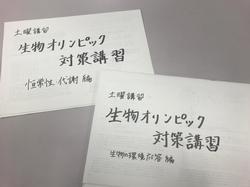 土曜講習
生物オリンピック
対策講習
恒常性・代謝 編
土曜講習
生物オリンピック
対策講習
生物の環境応答 編